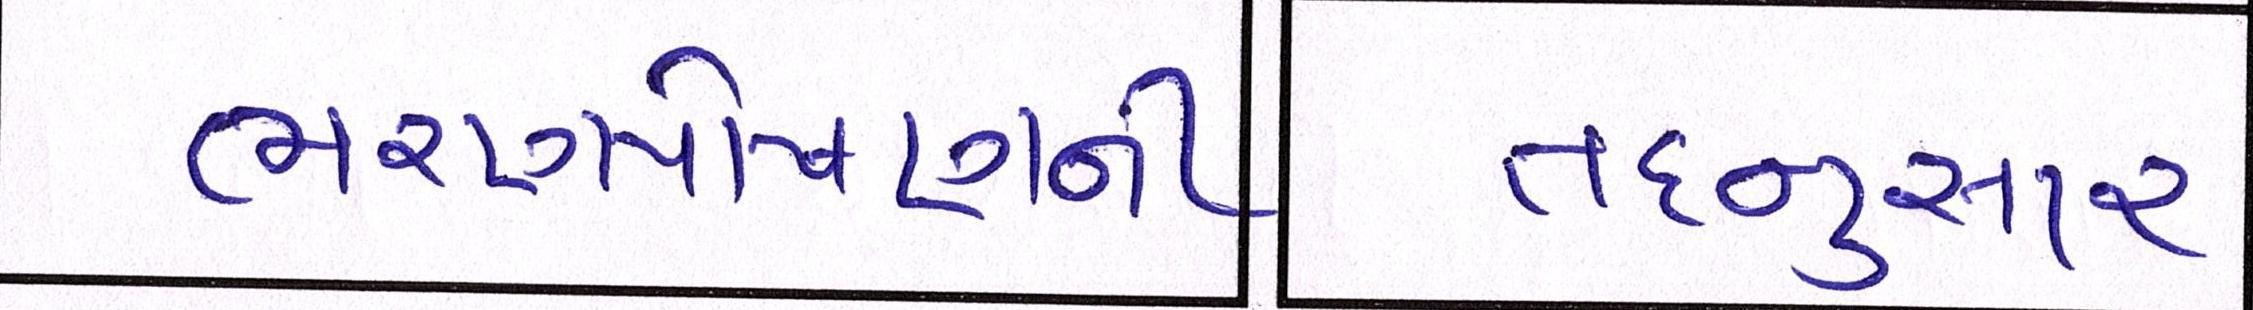 ભરણપોષણની તદનુસાર